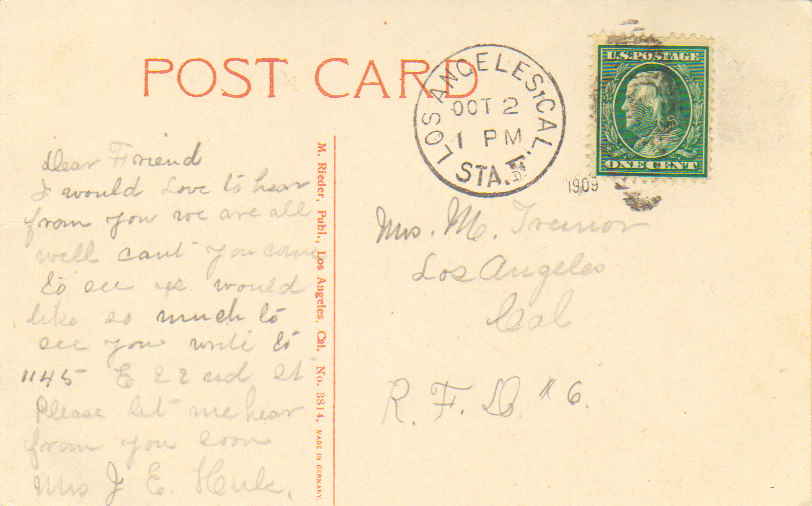 POST CARD
LOS ANGELES, CAL.
OCT 2
1 PM
STA.
1909
U.S. POSTAGE
ONE CENT
Dear Friend
I would love to hear
from you we are all
well cant you come
to see us would
like so much to
see you write to
1145 E 22nd St
Please let me hear
from you soon
Mrs J E
M. Rieder, Publ., Los Angeles, Cal. No. 3814. MADE IN GERMANY.
Mrs. M. Treanor
Los Angeles
Cal
R. F. D. # 6.